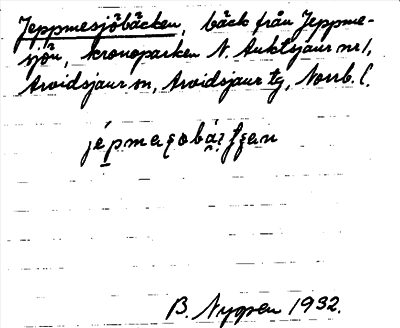 Jeppmesjöbäcken, bäck från Jeppme-
sjön, kronoparken N. Auktsjaur nr 1,
Arvidsjaur sn, Arvidsjaur tg, Norrb. l.
B. Nygren 1932.